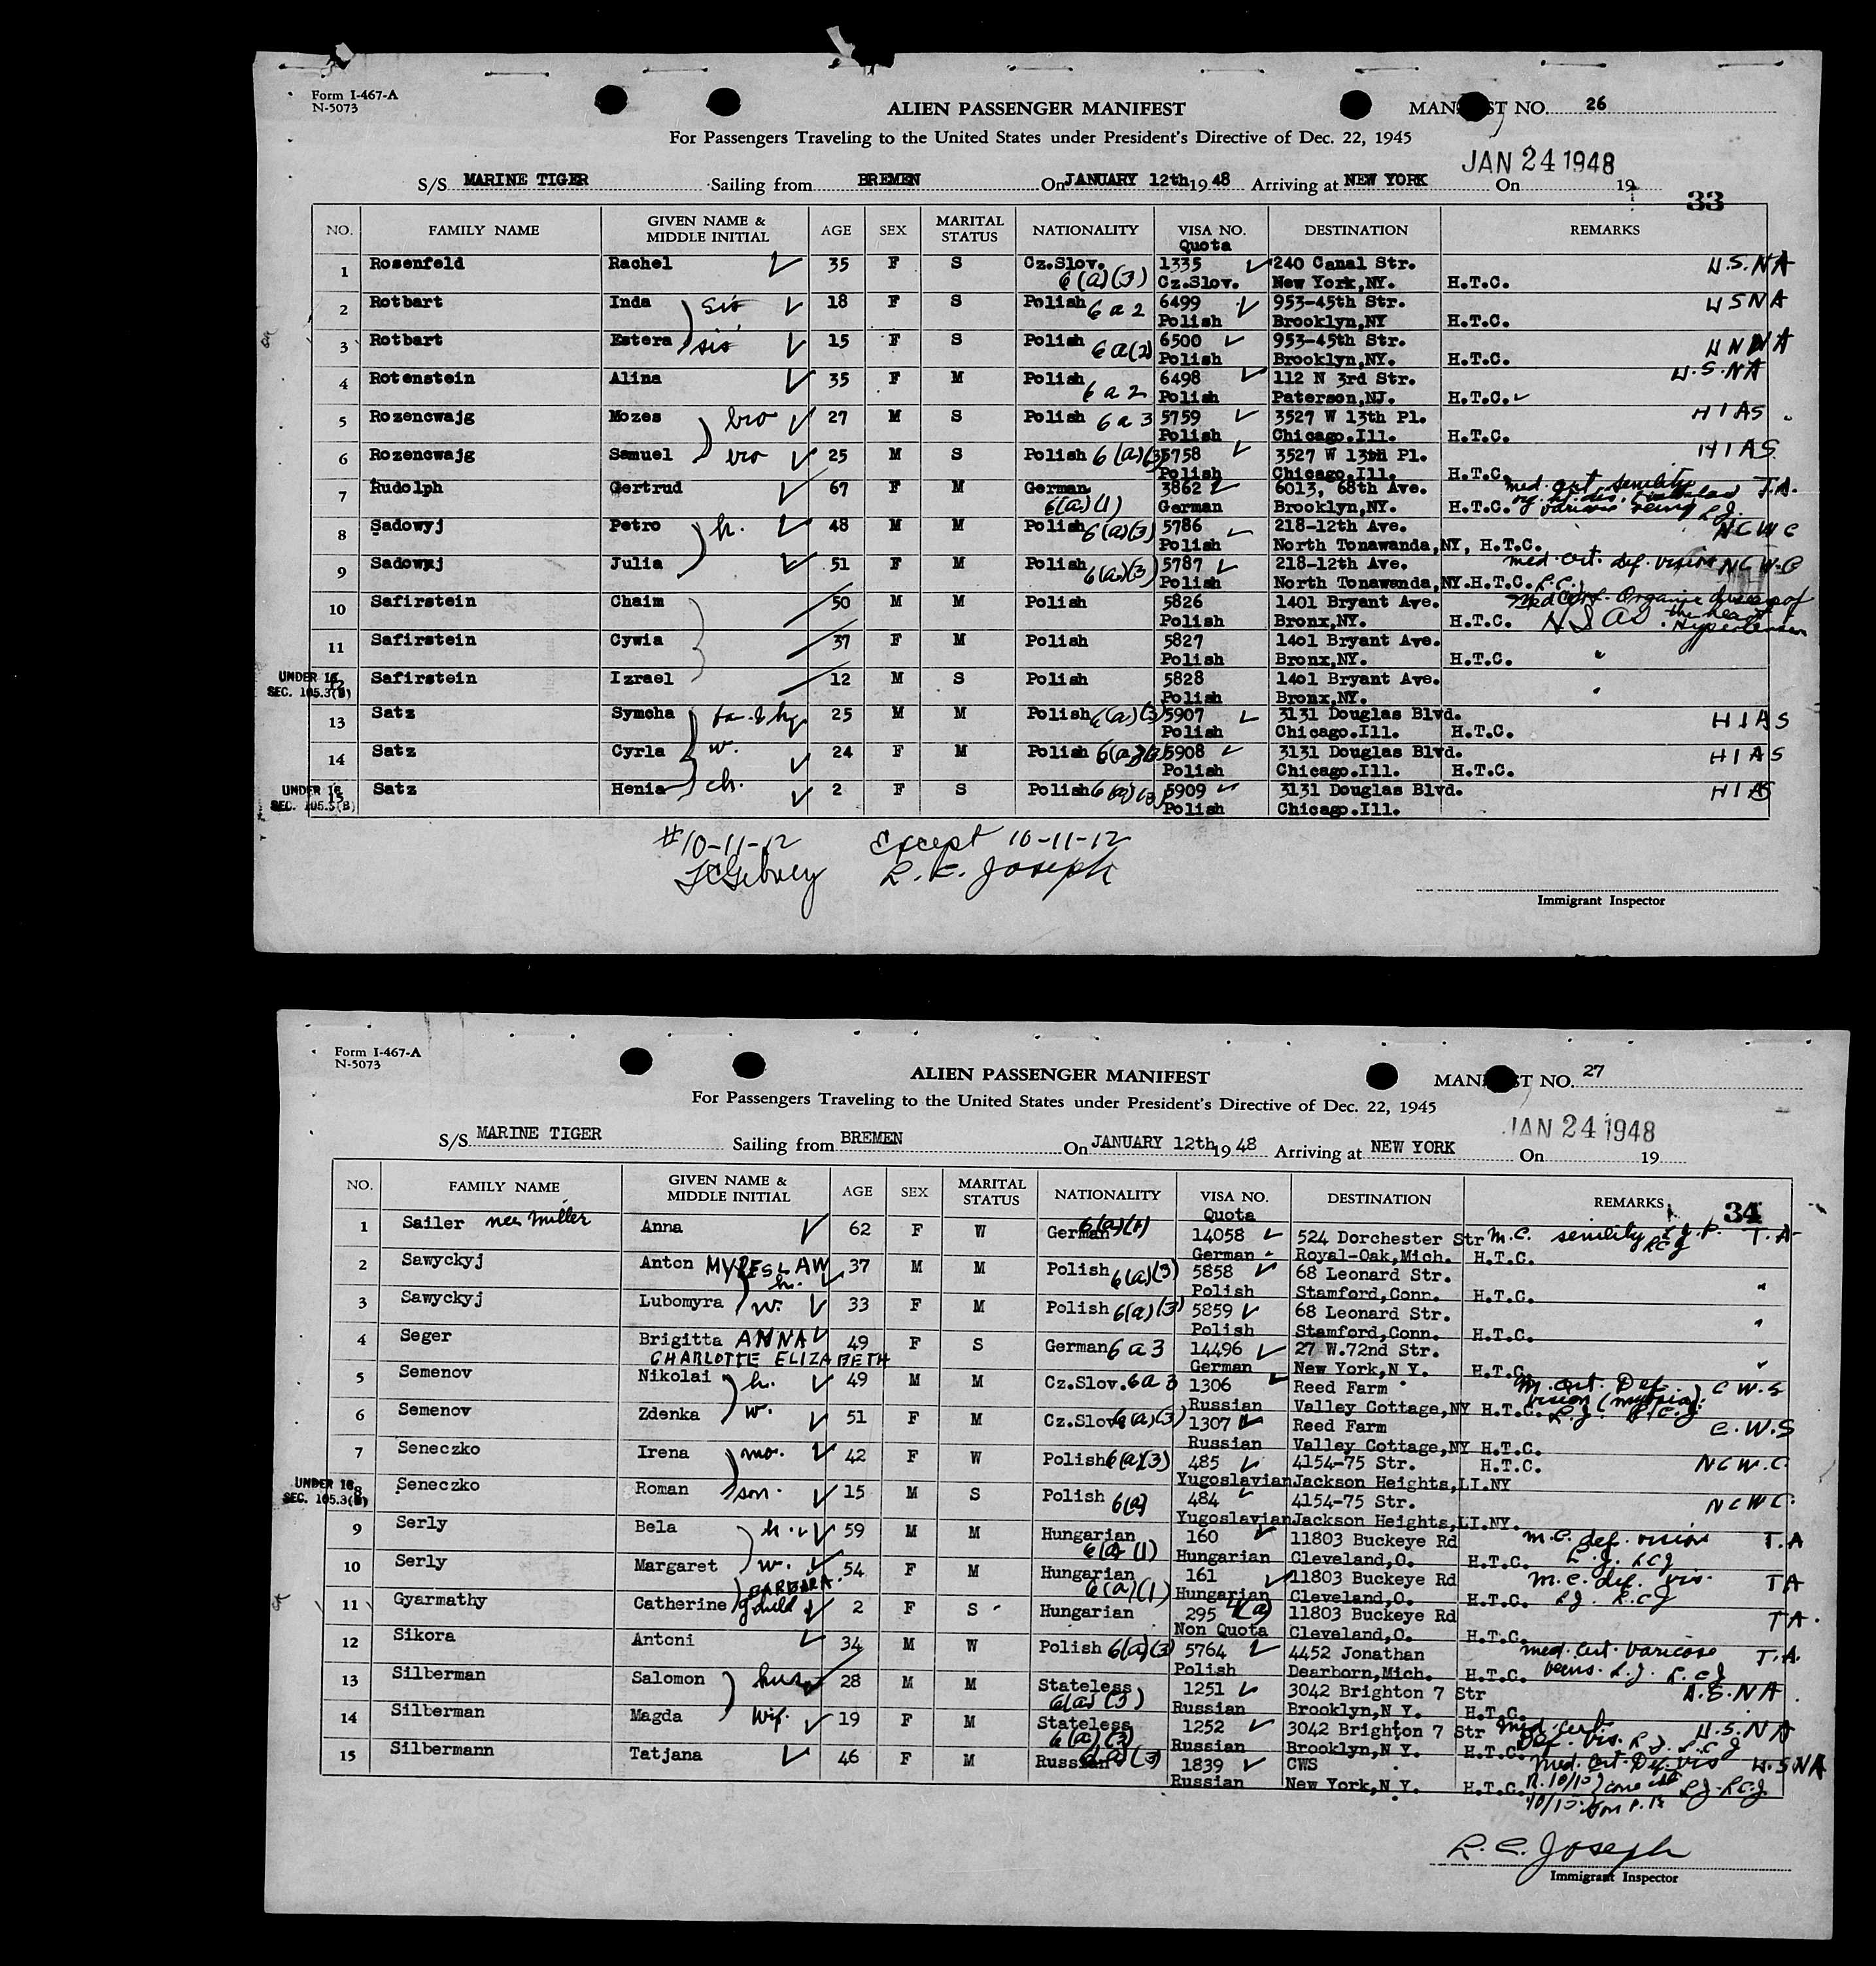 Form I-467-A
N-5073
ALIEN PASSENGER MANIFEST
MAN ST NO. 26
For Passengers Traveling to the United States under President's Directive of Dec. 22, 1945
JAN 24 1948
S/S MARINE TIGER Sailing from BREMEN On JANUARY 12th 19 48 Arriving at NEW YORK On 19
33
NO. FAMILY NAME GIVEN NAME & MIDDLE INITIAL AGE SEX MARITAL STATUS NATIONALITY VISA NO. DESTINATION REMARKS
Quota
1 Rosenfeld Rachel 35 F S Cz.Slov. 1335 240 Canal Str. U.S.NA
6(a)(3) Cz.Slov. New York,NY. H.T.C.
2 Rotbart Inda sis 18 F S Polish 6 a 2 6499 953-45th Str. USNA
Polish Brooklyn,NY H.T.C.
3 Rotbart Estera sis 15 F S Polish 6 a(2) 6500 953-45th Str.
Polish Brooklyn,NY. H.T.C.
4 Rotenstein Alina 35 F M Polish 6 a 2 6498 112 N 3rd Str. U.S.NA
Polish Paterson,NJ. H.T.C.
5 Rozencwajg Mozes bro 27 M S Polish 6 a 3 5759 3527 W 13th Pl. HIAS
Polish Chicago.Ill. H.T.C.
6 Rozencwajg Samuel bro 25 M S Polish 6(a)(3) 5758 3527 W 13th Pl. HIAS
Polish Chicago.Ill. H.T.C.
7 Rudolph Gertrud 67 F M German 3862 6013, 68th Ave. med. cert. senility T.A.
6(a)(1) German Brooklyn,NY. H.T.C.
8 Sadowyj Petro h. 48 M M Polish 6(a)(3) 5786 218-12th Ave. NCWC
Polish North Tonawanda,NY, H.T.C.
9 Sadowxj Julia 51 F M Polish 6(a)(3) 5787 218-12th Ave. med. cert. def. vision NCW.C
Polish North Tonawanda,NY.H.T.C.
10 Safirstein Chaim 50 M M Polish 5826 1401 Bryant Ave. Med Cert. Organic disease of
Polish Bronx,NY. H.T.C. the heart Hypertension
11 Safirstein Cywia 37 F M Polish 5827 14o1 Bryant Ave.
Polish Bronx,NY. H.T.C. "
UNDER 16 SEC. 105.3(B) 12 Safirstein Izrael 12 M S Polish 5828 14o1 Bryant Ave.
Polish Bronx,NY. "
13 Satz Symcha fa. & h. 25 M M Polish 6(a)(3) 5907 3131 Douglas Blvd. HIAS
Polish Chicago.Ill. H.T.C.
14 Satz Cyrla w. 24 F M Polish 6(a)(3) 5908 3131 Douglas Blvd. HIAS
Polish Chicago.Ill. H.T.C.
UNDER 16 SEC. 105.3(B) 15 Satz Henia ch. 2 F S Polish 6(a)(3) 5909 3131 Douglas Blvd. HIAS
Polish Chicago.Ill.
#10-11-12 Except 10-11-12
R. E. Joseph
Immigrant Inspector
Form I-467-A
N-5073
ALIEN PASSENGER MANIFEST
MAN ST NO. 27
For Passengers Traveling to the United States under President's Directive of Dec. 22, 1945
JAN 24 1948
S/S MARINE TIGER Sailing from BREMEN On JANUARY 12th 19 48 Arriving at NEW YORK On 19
NO. FAMILY NAME GIVEN NAME & MIDDLE INITIAL AGE SEX MARITAL STATUS NATIONALITY VISA NO. DESTINATION REMARKS
Quota 34
1 Sailer nee Miller Anna 62 F W German 6(a)(1) 14058 524 Dorchester Str M.C. senility T.A.
German Royal-Oak,Mich. H.T.C.
2 Sawyckyj Anton MYRESLAW h. 37 M M Polish 6(a)(3) 5858 68 Leonard Str.
Polish Stamford,Conn. H.T.C. "
3 Sawyckyj Lubomyra w. 33 F M Polish 6(a)(3) 5859 68 Leonard Str.
Polish Stamford,Conn. H.T.C. "
4 Seger Brigitta ANNA 49 F S German 6 a 3 14496 27 W.72nd Str.
CHARLOTTE ELIZABETH German New York,N Y. H.T.C. "
5 Semenov Nikolai h. 49 M M Cz.Slov. 6 a 3 1306 Reed Farm M. Cert. Def. C W.S
Russian Valley Cottage,NY H.T.C. vision (myopia)
6 Semenov Zdenka w. 51 F M Cz.Slov. 6(a)(3) 1307 Reed Farm C.W.S
Russian Valley Cottage,NY H.T.C.
7 Seneczko Irena mo. 42 F W Polish 6(a)(3) 485 4154-75 Str. H.T.C. NCW.C.
Yugoslavian Jackson Heights,LI.NY
UNDER 16 SEC. 105.3(B) 8 Seneczko Roman son. 15 M S Polish 6(a) 484 4154-75 Str. NCWC.
Yugoslavian Jackson Heights,LI.NY.
9 Serly Bela h. 59 M M Hungarian 160 11803 Buckeye Rd M.C. def. vision T.A
6(a)(1) Hungarian Cleveland,O. H.T.C.
10 Serly Margaret w. 54 F M Hungarian 161 11803 Buckeye Rd M.C. def. vis. TA
6(a)(1) Hungarian Cleveland,O. H.T.C.
11 Gyarmathy Catherine BARBARA g child 2 F S Hungarian 295 4(a) 11803 Buckeye Rd TA.
Non Quota Cleveland,O. H.T.C.
12 Sikora Antoni 34 M W Polish 6(a)(3) 5764 4452 Jonathan med. cert. varicose T.A.
Polish Dearborn,Mich. H.T.C. veins.
13 Silberman Salomon hus 28 M M Stateless 1251 3042 Brighton 7 Str U.S.NA.
6(a)(3) Russian Brooklyn,N Y. H.T.C.
14 Silberman Magda wif. 19 F M Stateless 1252 3042 Brighton 7 Str Med. cert. U.S.NA
6(a)(3) Russian Brooklyn,N Y. H.T.C. Def. Vis.
15 Silbermann Tatjana 46 F M Russian 6(a)(3) 1839 CWS Med. Cert. Def. Vis U.SNA
Russian New York,N Y. H.T.C.
R. E. Joseph
Immigrant Inspector